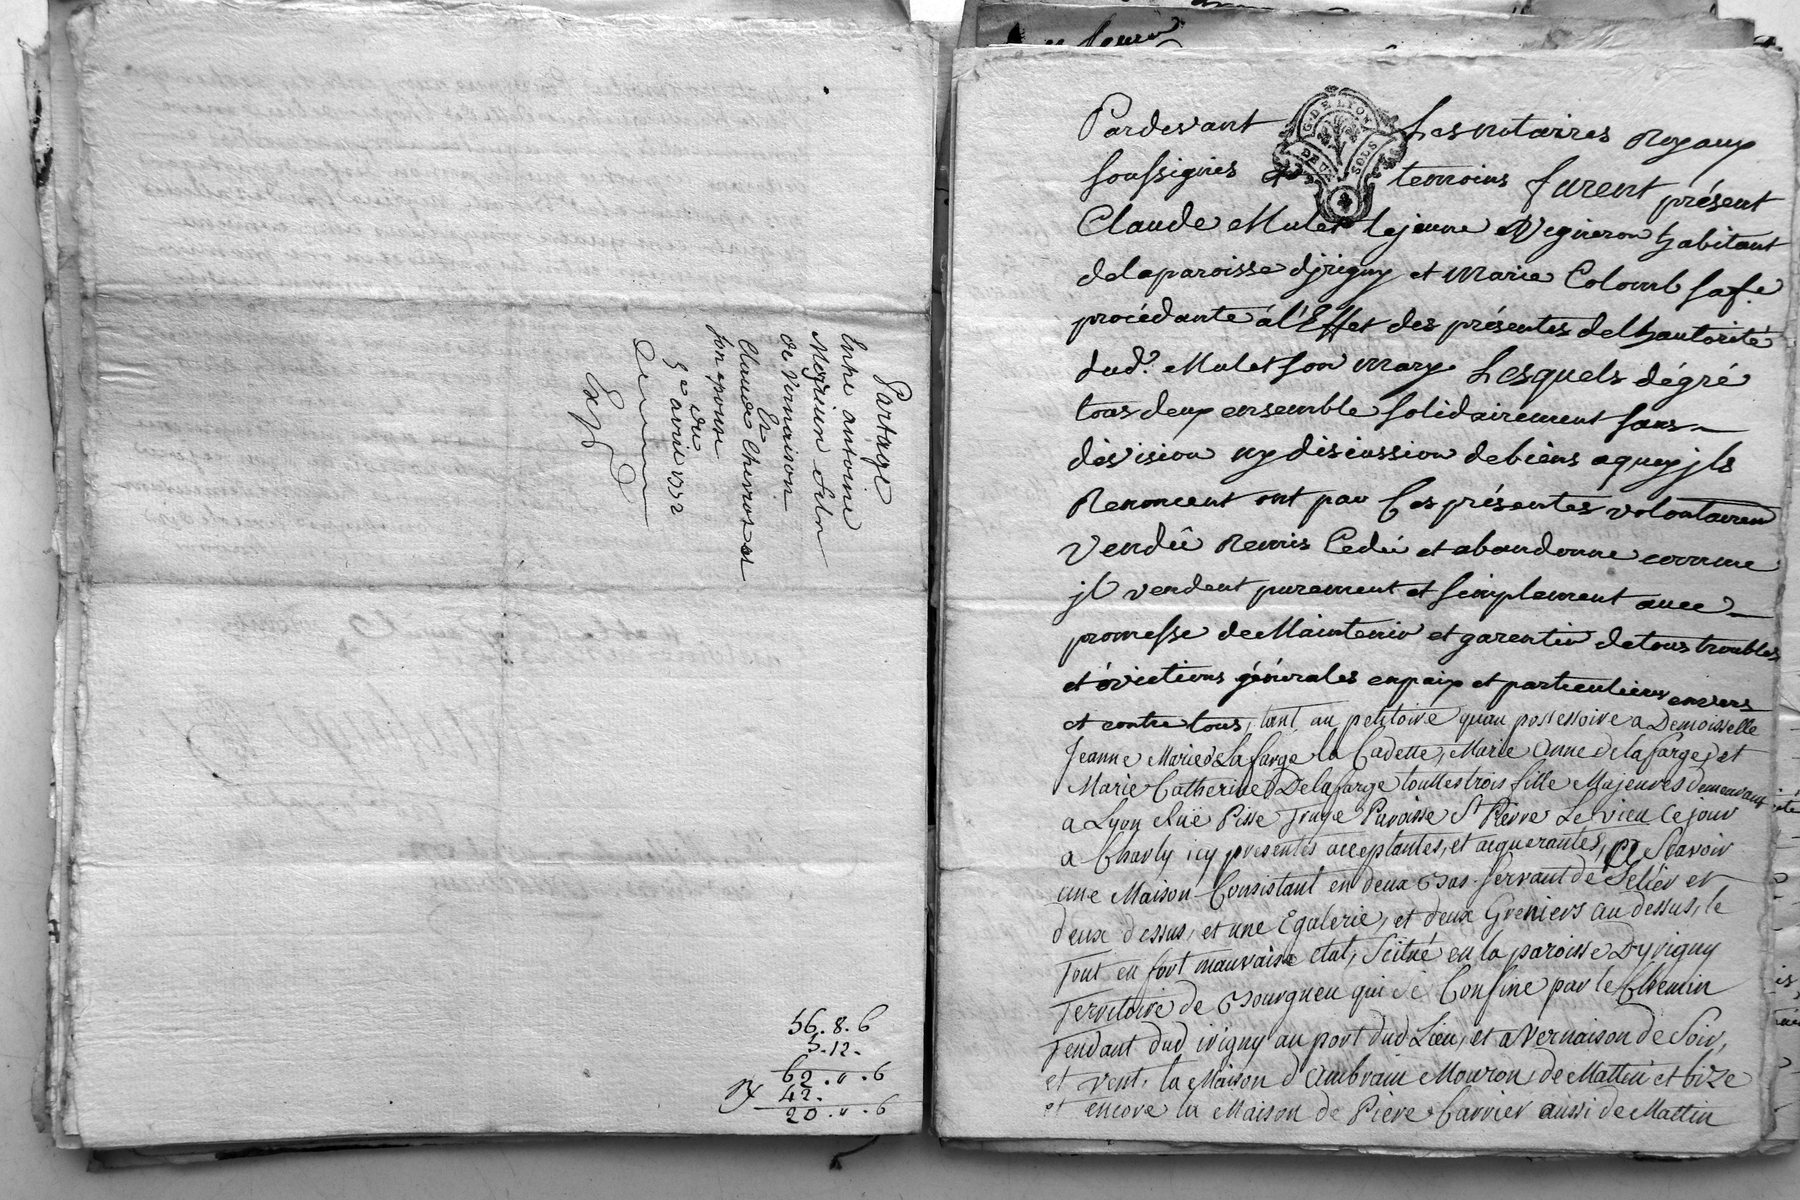 Partage
Entre antoine
Mozieun
de Vernaison
Et
Claude Chevrosses
son epouse
du
avril 1772
56.8.6
5.12.
62.0.6
42.
20.0.6
Pardevant Les notaires Royaux
soussignés & temoins furent présent
G. DE LYON
DEUX SOLS
Claude Mulet lejeune Vigneron habitant
delaparoisse djrigny et Marie Colomb sa f.e
procédante à l'Effet des présentes delhautorité
dud.t Mulet son mary Lesquels dégré
tous deux ensemble solidairement sans
division ny discussion debiens aquoy jls
Renoncent ont par Ces présentes volontairem
vendû Remis Cedé et abandonne comme
jl vendent purement et simplement avec
promesse de Maintenir et garentir detous troubles
et évictions générales enpaix et particulieres envers
et contre tous, tant au petitoire quau possessoire a Demoisselle
Jeanne Marie DeLafarge la Cadette, Marie Anne delafarge, et
Marie Catherine Delafarge touttes trois fille Majeures demeurant
a Lyon Rüe Pisse Truye Paroisse St Pierre Le vieu Cejour
a Charly icy presentes acceptantes, et aquerantes, Scavoir
une Maison Consistant en deux Bas servant de Selier et
deux dessus, et une Egalerie, et deux Greniers au dessus, le
Tout en fort mauvaise etat, Scitué en la paroisse Dyrigny
Territoire de Bourgneu qui se Confine par le Chemin
Tendant dud irigny au port dud Lieu, et a Vernaison de Soir,
et vent, la Maison d'Ambrain Mouron, de Mattin et bize
et encore la Maison de Piere Carrier aussi de Mattin